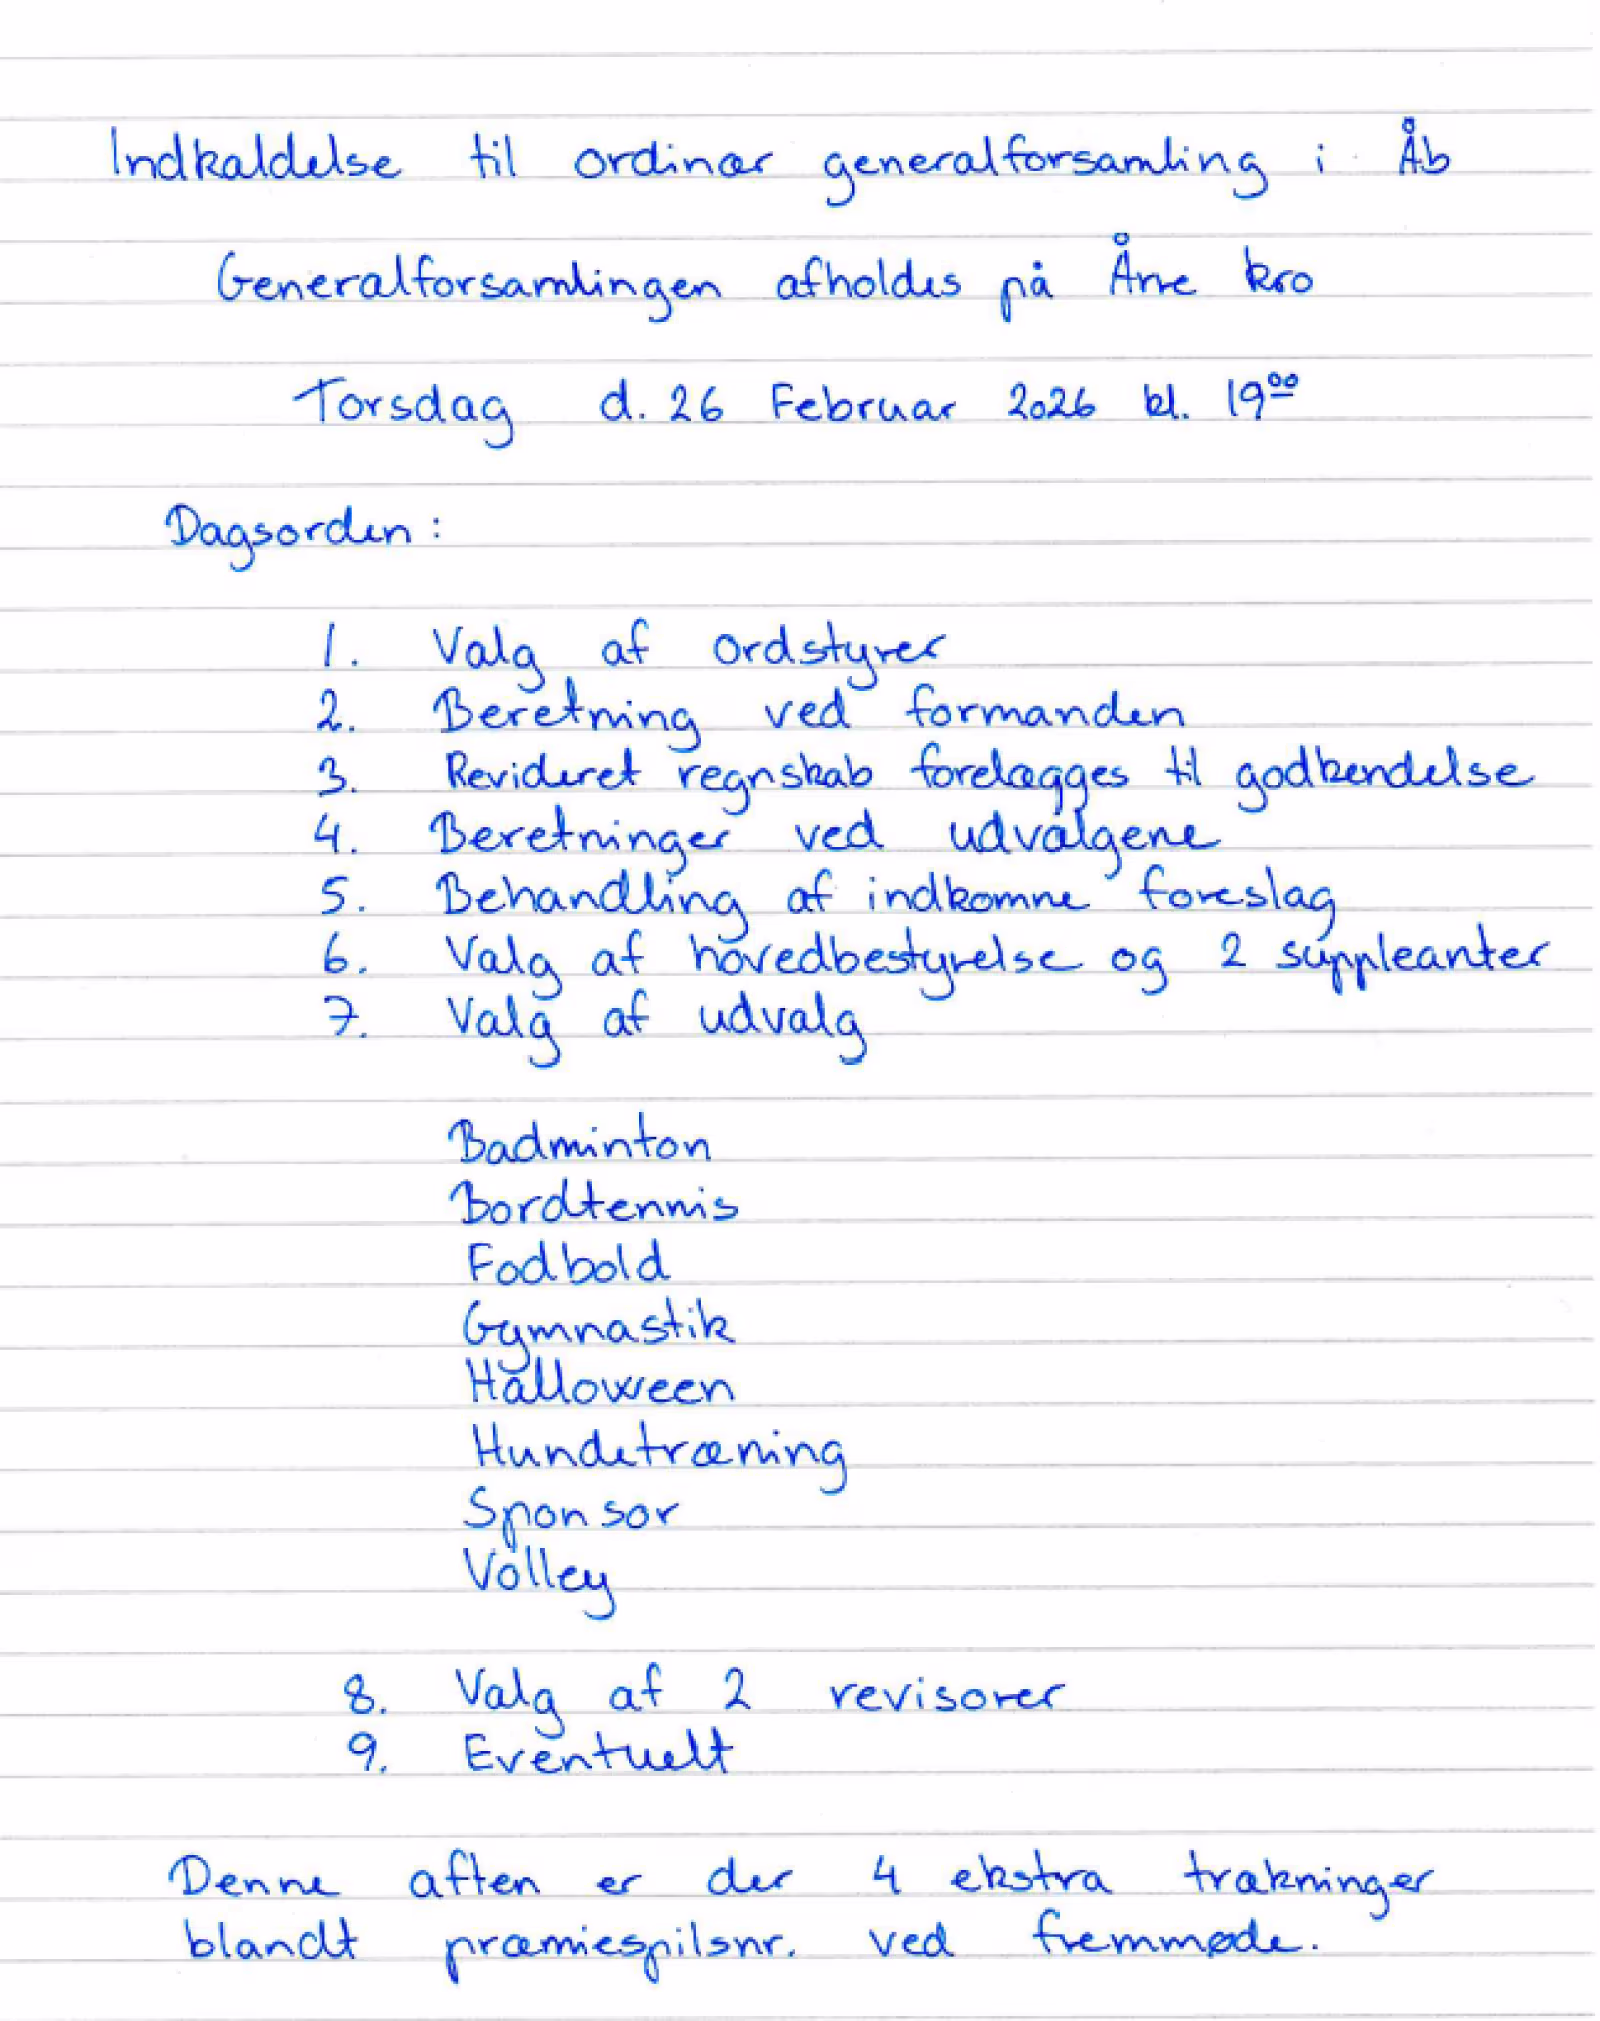 Indkaldelse til ordinær generalforsamling i Åb
Generalforsamlingen afholdes på Årre kro
Torsdag d. 26 Februar 2026 kl. 19⁰⁰
Dagsorden:
1. Valg af ordstyrer
2. Beretning ved formanden
3. Revideret regnskab forelægges til godkendelse
4. Beretninger ved udvalgene
5. Behandling af indkomne foreslag
6. Valg af hovedbestyrelse og 2 suppleanter
7. Valg af udvalg
Badminton
Bordtennis
Fodbold
Gymnastik
Halloween
Hundetræning
Sponsor
Volley
8. Valg af 2 revisorer
9. Eventuelt
Denne aften er der 4 ekstra trækninger
blandt præmiespilsnr. ved fremmøde.